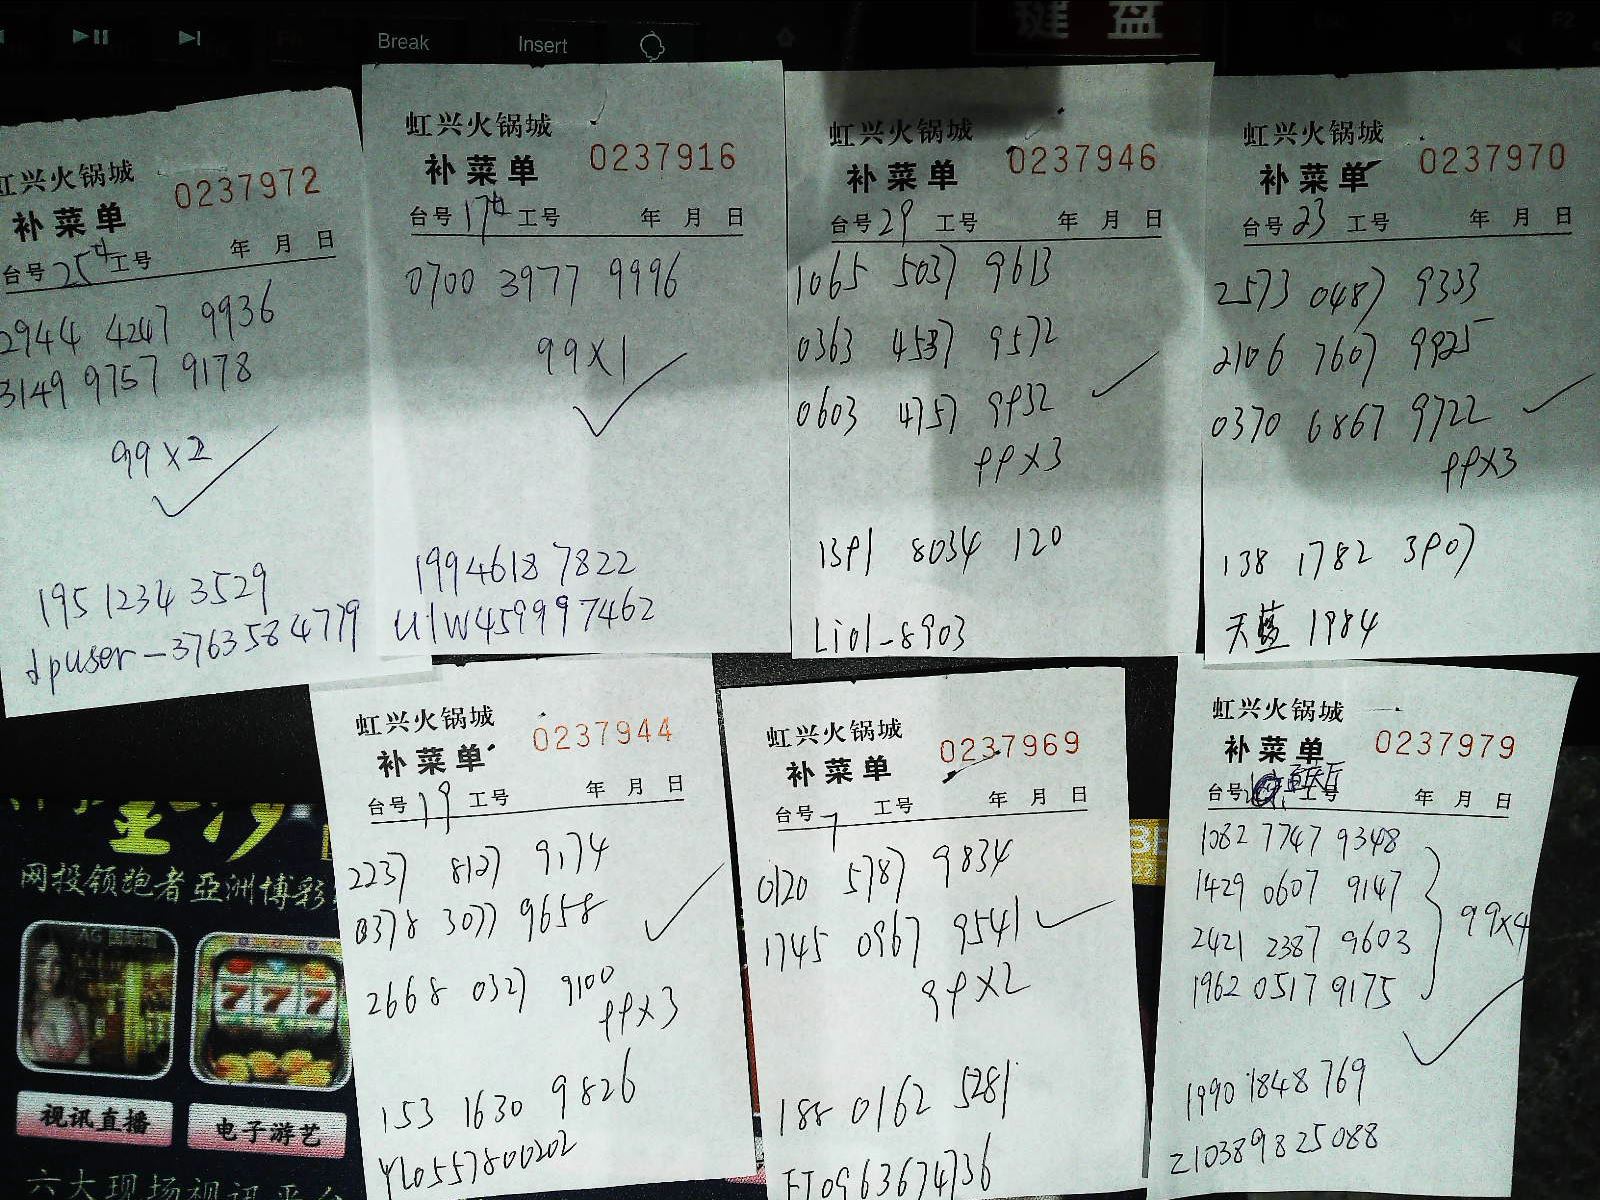 Break
Insert
F2
键 盘
虹兴火锅城
补菜单 0237972
台号 25 工号 年 月 日
2944 4247 9936
3149 9757 9178
99×2
195 1234 3529
dpuser-3763584779
虹兴火锅城
补菜单 0237916
台号 17 工号 年 月 日
0700 3977 9996
99×1
199 4618 7822
U1W459997462
虹兴火锅城
补菜单 0237946
台号 29 工号 年 月 日
1065 5037 9613
0363 4587 9572
0603 4757 9932
99×3
1391 8034 120
Liol-8903
虹兴火锅城
补菜单 0237970
台号 23 工号 年 月 日
2573 0487 9333
2106 7607 9925
0370 6867 9722
99×3
138 1782 3907
天蓝 1984
虹兴火锅城
补菜单 0237944
台号 19 工号 年 月 日
2237 8127 9174
0378 3077 9658
2668 0327 9100
99×3
153 1630 9826
YL0557800202
虹兴火锅城
补菜单 0237969
台号 7 工号 年 月 日
0120 5787 9834
1745 0967 9541
99×2
188 0162 5281
FT0963674736
虹兴火锅城
补菜单 0237979
台号 工号 年 月 日
1082 7747 9348
1429 0607 9147
2421 2387 9603
1962 0517 9175
99×4
1990 1848 769
Z10389825088
网投领跑者亞洲博彩
777
视讯直播
电子游艺
六大现场视讯平台